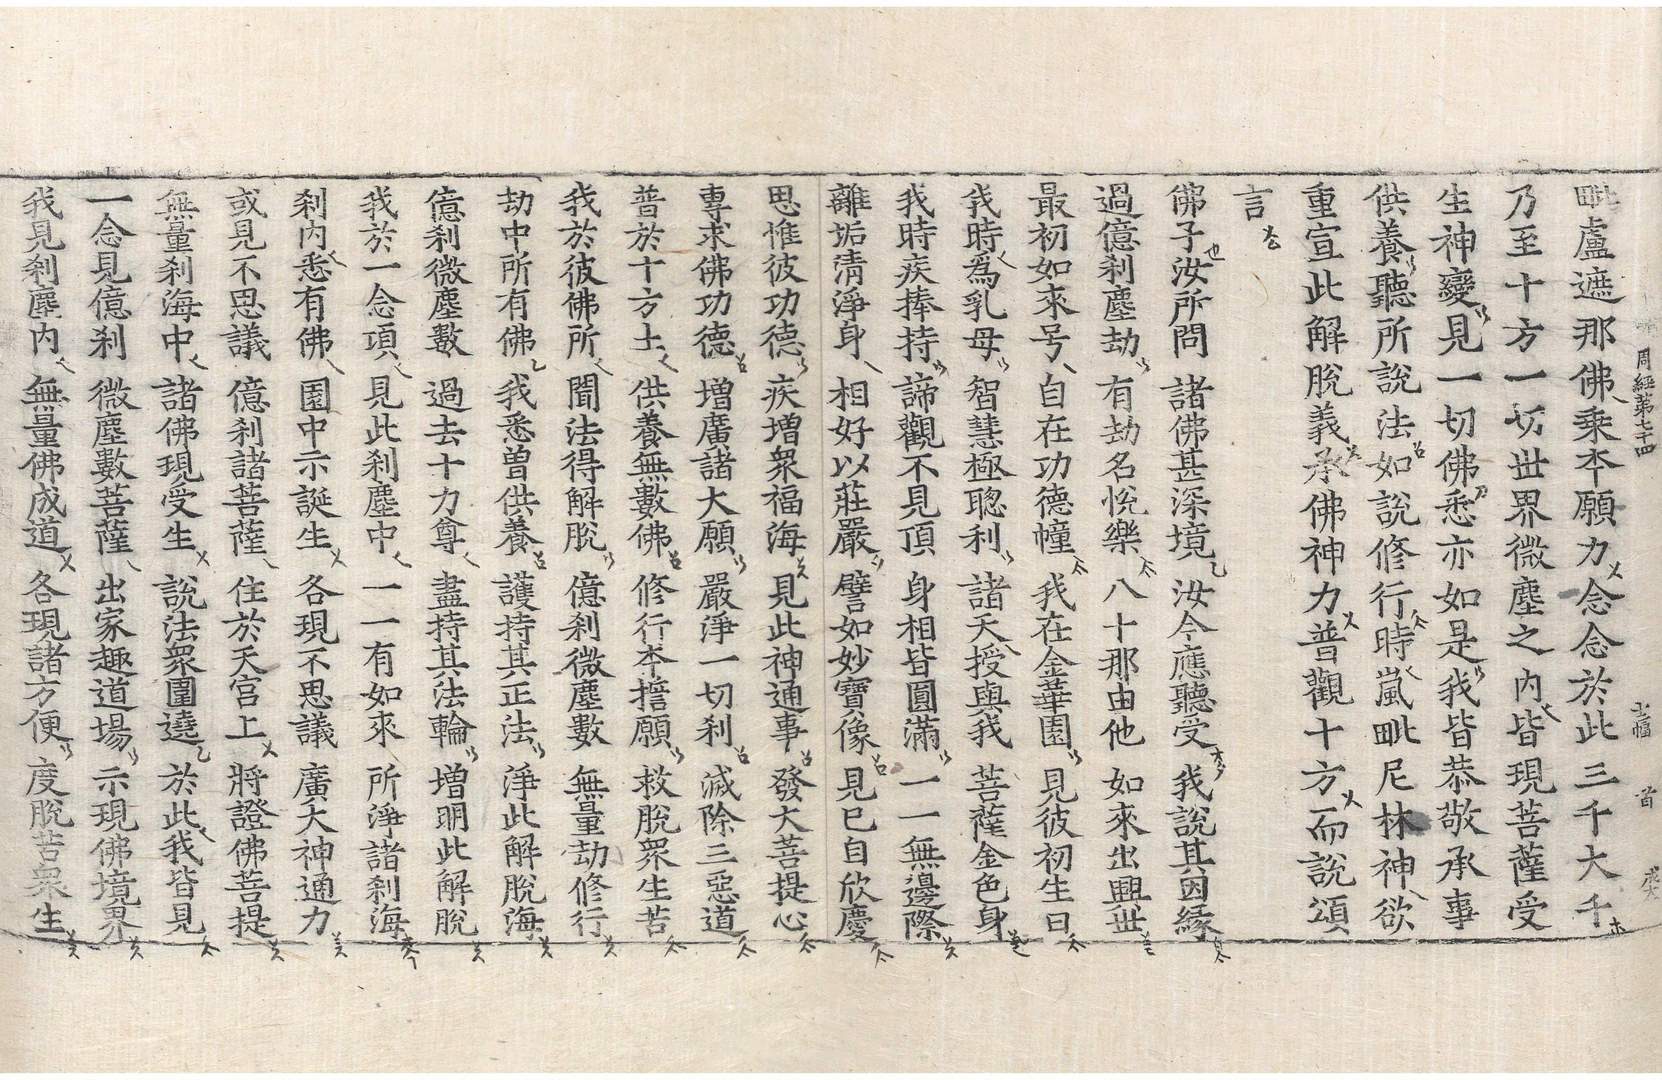 周經第七十四
十一幅
首
毗盧遮那佛乗夲願力念念於此三千大千
乃至十方一切世界微塵之內皆現菩薩受
生神變見一切佛悉亦如是我皆恭敬承事
供養聽所說法如說修行時嵐毗尼林神欲
重宣此解脫義承佛神力普觀十方而說頌
言
佛子汝所問 諸佛甚深境 汝今應聽受 我說其因緣
過億刹塵劫 有劫名悅樂 八十那由他 如來出興世
最初如來号 自在功德幢 我在金華園 見彼初生日
我時爲乳母 智慧極聰利 諸天授與我 菩薩金色身
我時疾捧持 諦觀不見頂 身相皆圓滿 一一無邊際
離垢清淨身 相好以莊嚴 譬如妙寶像 見已自欣慶
思惟彼功德 疾增衆福海 見此神通事 發大菩提心
專求佛功德 增廣諸大願 嚴淨一切刹 滅除三惡道
普於十方土 供養無數佛 修行夲擔願 救脫衆生苦
我於彼佛所 聞法得解脫 億刹微塵數 無量劫修行
劫中所有佛 我悉曾供養 護持其正法 淨此解脫海
億刹微塵數 過去十力尊 盡持其法輪 增明此解脫
我於一念項 見此刹塵中 一一有如來 所淨諸刹海
刹內悉有佛 園中示誕生 各現不思議 廣大神通力
或見不思議 億刹諸菩薩 住於天宮上 將證佛菩提
無量刹海中 諸佛現受生 說法衆圍遶 於此我皆見
一念見億刹 微塵數菩薩 出家趣道場 示現佛境界
我見刹塵內 無量佛成道 各現諸方便 度脫苦衆生